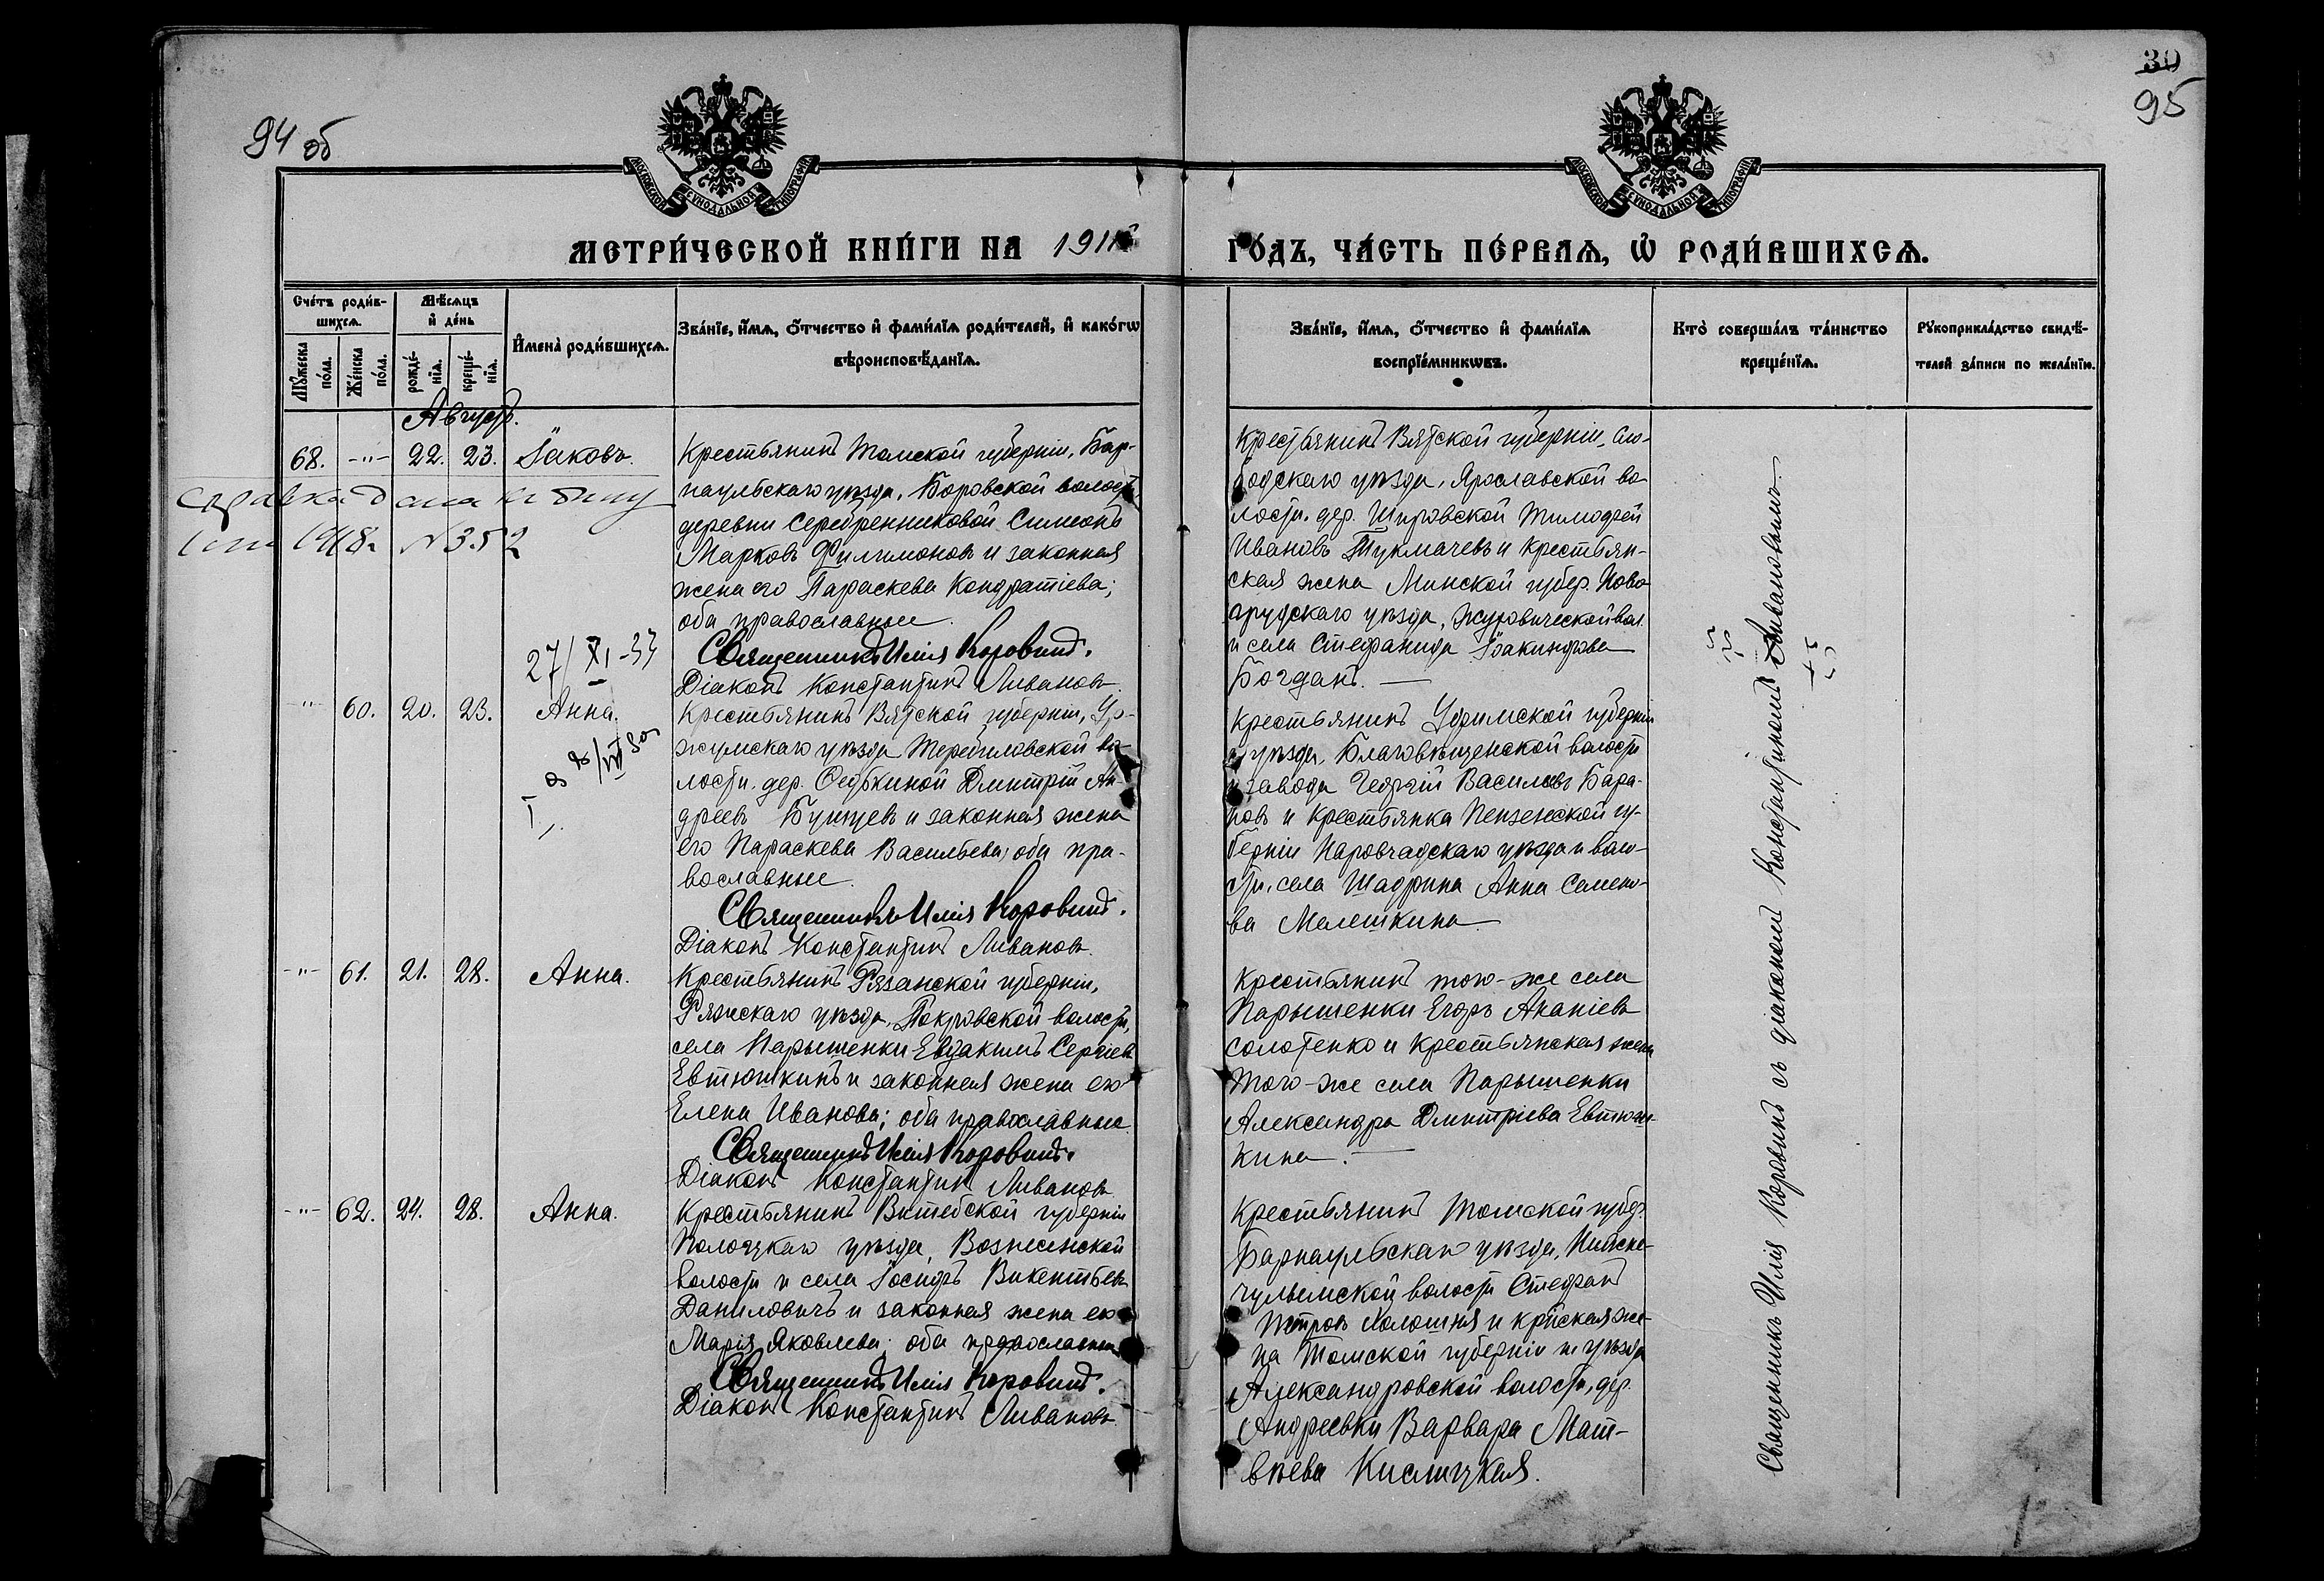 94 об
30
95
МОСКОВСКОЙ СѴНОДАЛЬНОЙ ТИПОГРАФІИ
МОСКОВСКОЙ СѴНОДАЛЬНОЙ ТИПОГРАФІИ
МЕТРИ́ЧЕСКОЙ КНИ́ГИ НА 1911й
ГО́ДЪ, ЧА́СТЬ ПЕ́РВАѦ, Ѽ РОДИ́ВШИХСѦ.
Сче́тъ роди́в-
шихсѧ.
Мꙋ́жеска по́ла.
Же́нска по́ла.
Мѣ́сѧцъ
и҆ де́нь
рожде́-
нїѧ.
креще́-
нїѧ.
И҆мена̀ роди́вшихсѧ.
Зва́нїе, и҆́мѧ, ѻ҆́тчество и҆ фами́лїѧ роди́телей, и҆ како́гѡ
вѣроисповѣ́данїѧ.
Зва́нїе, и҆́мѧ, ѻ҆́тчество и҆ фами́лїѧ
воспрїе́мникѡвъ.
Кто̀ соверша́лъ та́инство
креще́нїѧ.
Рꙋкоприкла́дство свидѣ́-
телей за́писи по жела́нїю.
Августъ.
68. -"- 22. 23. Іаковъ.
Крестьянинъ Томской губерніи, Бар-
наульскаго уѣзда, Боровской волости,
деревни Серебренниковой Симеонъ
Марковъ Филимоновъ и законная
жена его Параскева Кондратіева;
оба православные.
Священникъ Илія Коровинъ.
Діаконъ Константинъ Ливановъ.
Крестьянинъ Вятской губерніи, Сло-
бодскаго уѣзда, Ярославской во-
лости, дер. Тимофей
Ивановъ Тукмачевъ и крестьян-
ская жена Минской губер. Ново-
грудскаго уѣзда, вол.
и села Стефанида Іоакинфова
Богданъ. —
справка дана
1918г. №352
27/XI-33
-"- 60. 20. 23. Анна.
Крестьянинъ Вятской губерніи, Ур-
жумскаго уѣзда Теребиловской во-
лости, дер. Дмитрій Ан-
дреевъ и законная жена
его Параскева Васильева; оба пра-
вославные.
Священникъ Илія Коровинъ.
Діаконъ Константинъ Ливановъ.
Крестьянинъ Уфимской губерніи
и уѣзда, Благовѣщенской волости
и завода Георгій Васильевъ Бара-
новъ и крестьянка Пензенской гу-
берніи Наровчадскаго уѣзда и воло-
сти, села Шадрина Анна Семено-
ва Малешкина
-"- 61. 21. 28. Анна.
Крестьянинъ Рязанской губерніи,
Ряжскаго уѣзда, Покровской волости,
села Парышенки Евдакимъ Сергіевъ
Евтюшкинъ и законная жена его
Елена Иванова; оба православные
Священникъ Илія Коровинъ.
Діаконъ Константинъ Ливановъ
Крестьянинъ того-же села
Парышенки Егоръ Ананіевъ
Солотенко и крестьянская жена
того-же села Парышенки
Александра Дмитріева Евтюш-
кина. —
-"- 62. 24. 28. Анна.
Крестьянинъ Витебской губерніи
Полоцкаго уѣзда, Вознесенской
волости и села Іосифъ Викентьевъ
Даниловичъ и законная жена его
Марія Яковлева; оба православные
Священникъ Илія Коровинъ.
Діаконъ Константинъ Ливановъ.
Крестьянинъ Томской губер.
Барнаульскаго уѣзда,
чулымской волости Стефанъ
Петровъ и кр҃ская же-
на Томской губерніи и уѣзда
Александровской волости, дер.
Андреевки Варвара Мат-
вѣева Кислицкая.
Священникъ Илія Коровинъ съ діакономъ Константиномъ Ливановымъ.